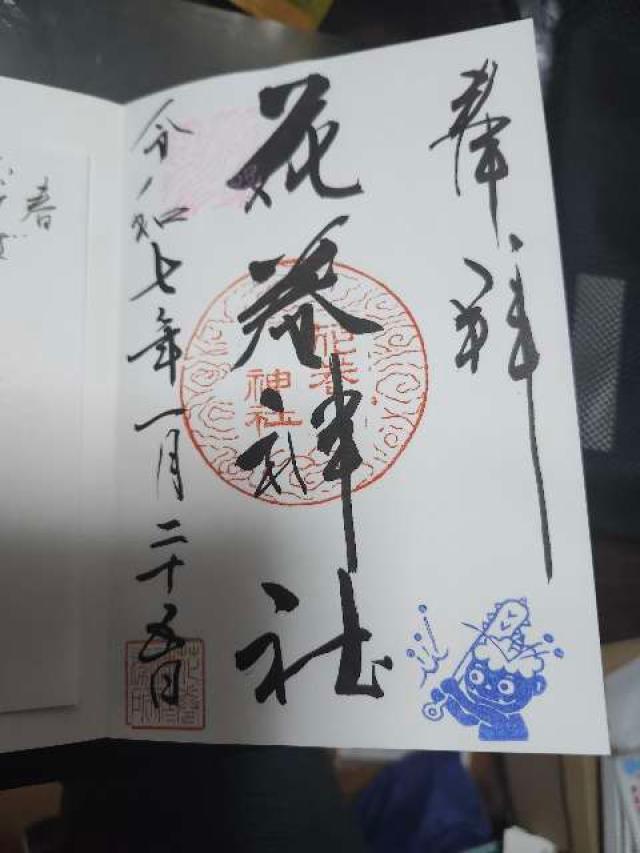 奉拝
花巻神社
令和七年一月二十五日
花巻
神社
春